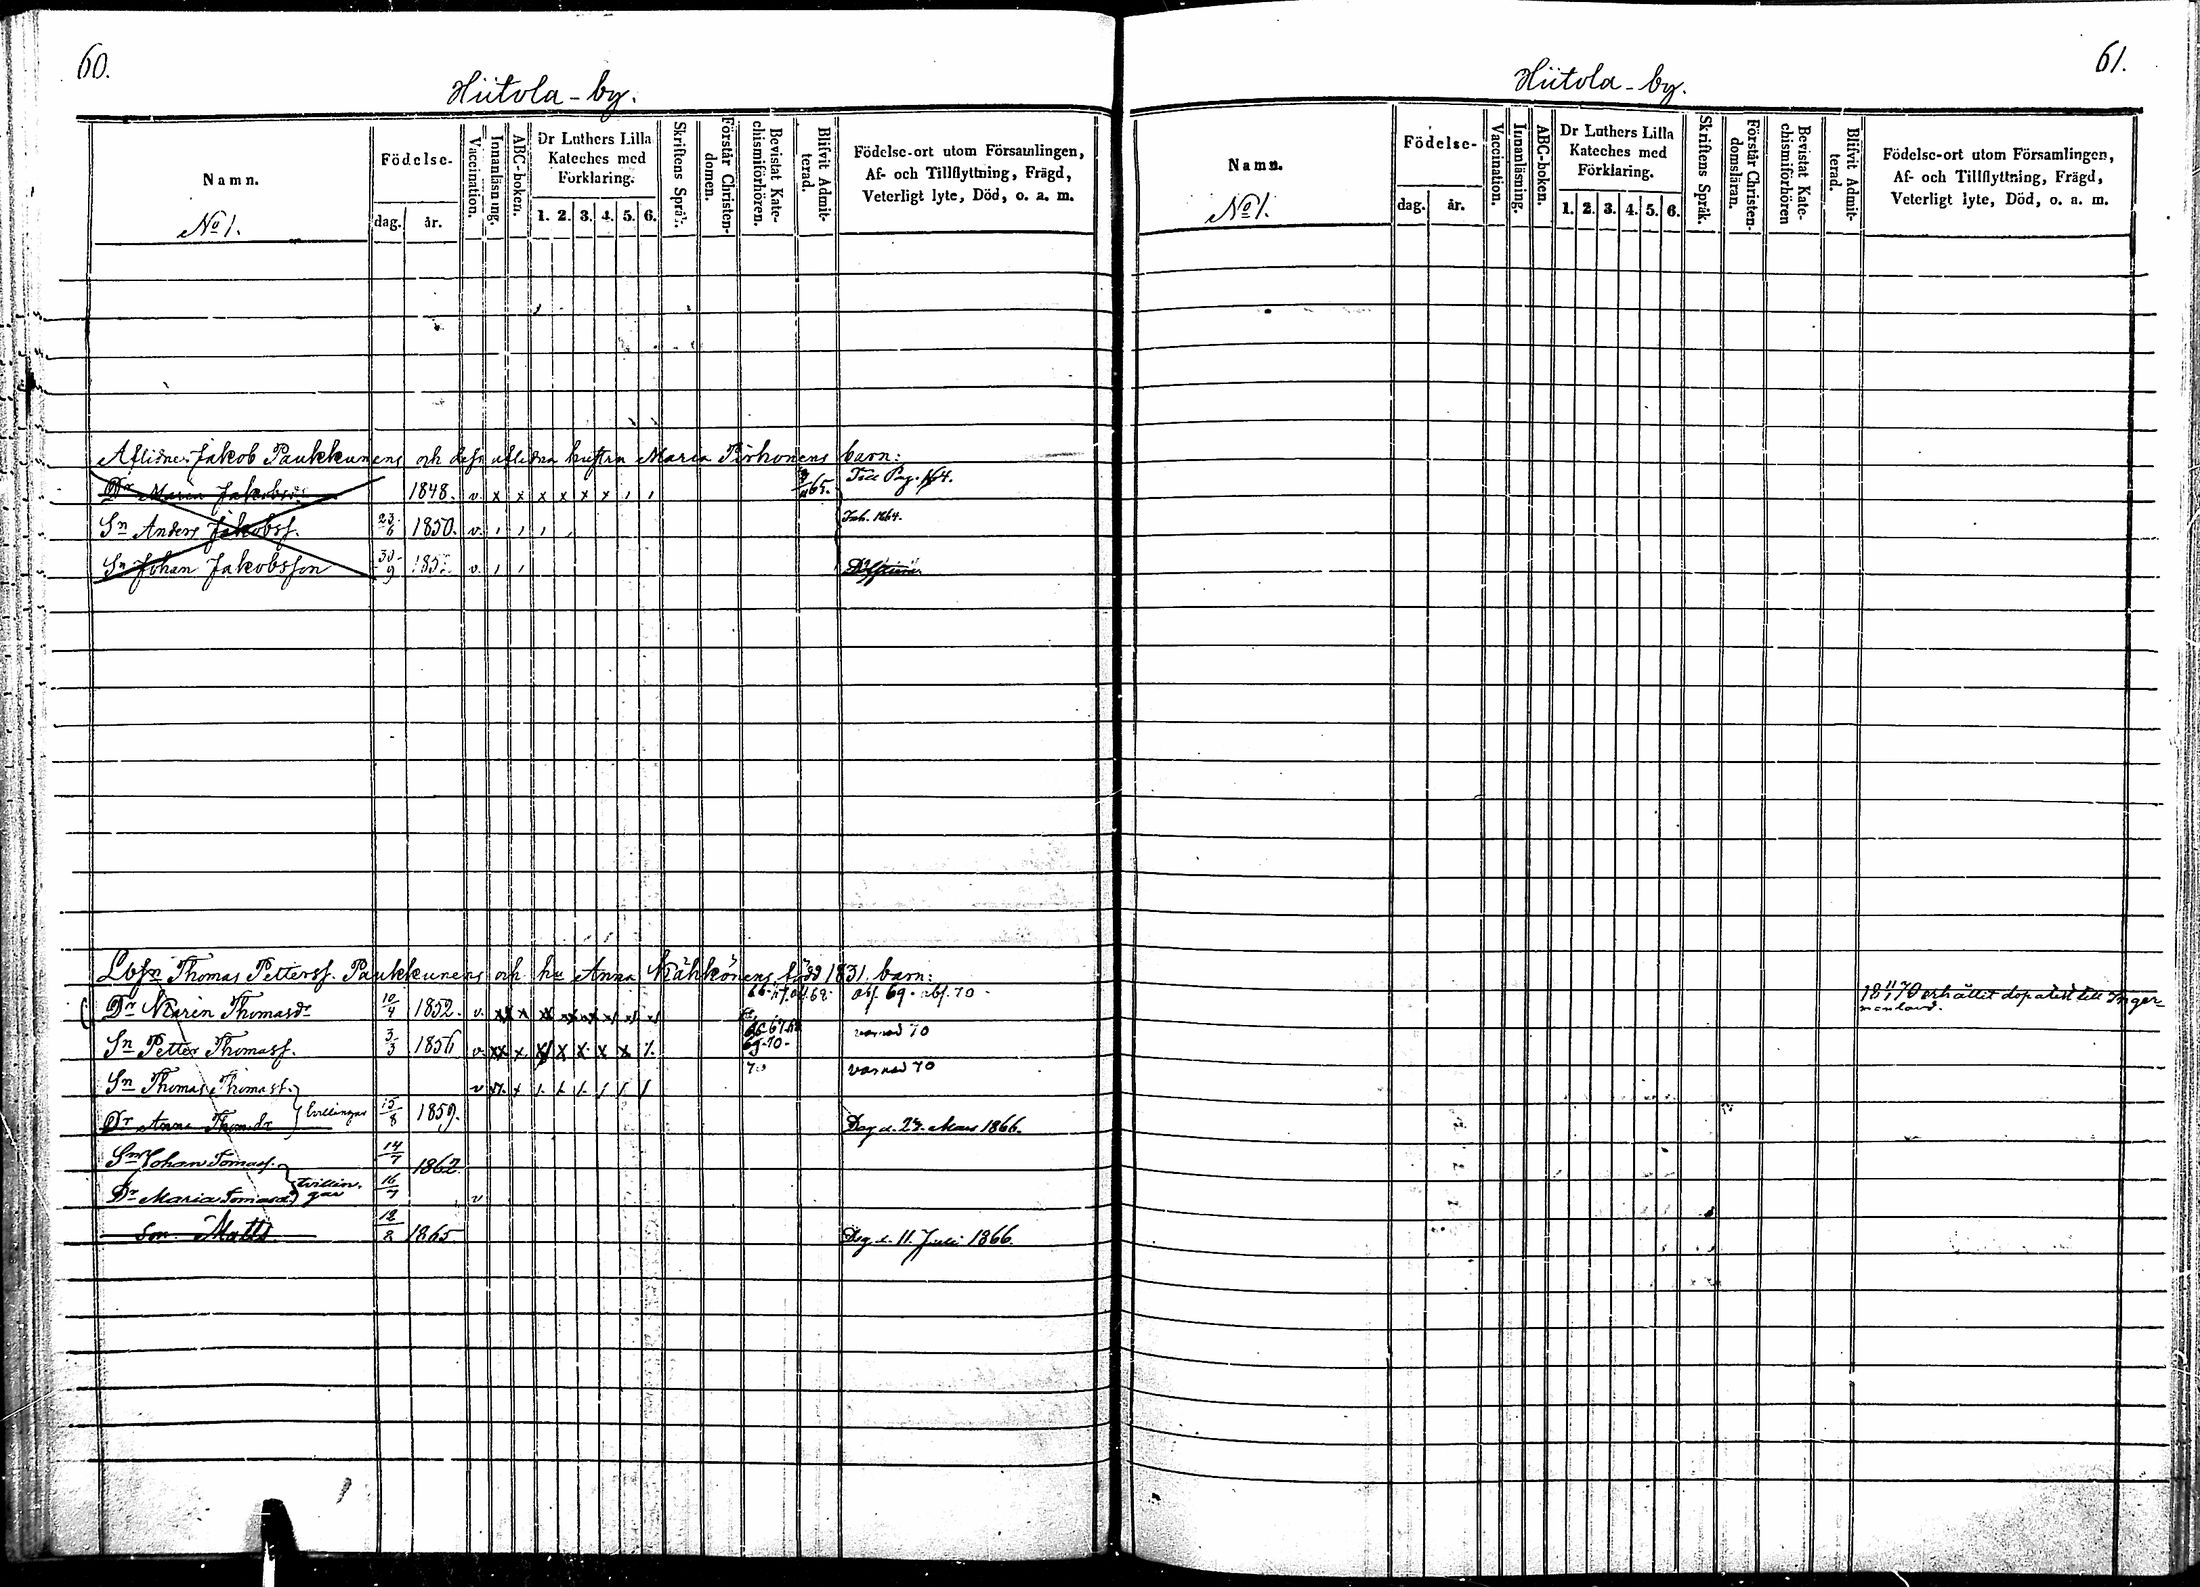 60.
Hiitola-by.
Namn.
No 1.
Födelse-
dag.
år.
Vaccination.
Innanläsning.
ABC-boken.
Dr Luthers Lilla
Kateches med
Förklaring.
1. 2. 3. 4. 5. 6.
Skriftens Språk.
Förstår Christen-
domen.
Bevistat Kate-
chismiförhören.
Blifvit Admit-
terad.
Födelse-ort utom Församlingen,
Af- och Tillflyttning, Frägd,
Veterligt lyte, Död, o. a. m.
Aflidne Jakob Paukkunens och dess aflidna hustru Maria Pirhonens barn:
Dr Maria Jakobsdr 1848. v. x x x x x x 65. Pag. 164.
Sn Anders Jakobss. 23/6 1850. v. 1864.
Sn Johan Jakobsson 30/9 v.
Lbsn Thomas Petterss. Paukkunens och hu Anna Kähkönens född 1831. barn:
Dr Karin Thomasdr 10/4 1852. v. abs. 69. abs. 70
Sn Petter Thomass. 3/3 1856 v. 69-70- varnad 70
Sn Thomas Thomass. v 70 varnad 70
Dr Anna Thomasdr tvillingar 15/8 1859. Dog d. 27. Mars 1866.
Sn Johan Tomass. 14/7 1862
Dr Maria Tomasdr tvillin-
gar 16/7 v
Son Matts 12/8 1865 Dog d. 11. Juli 1866.
61.
Hiitola-by.
Namn.
No 1.
Födelse-
dag.
år.
Vaccination.
Innanläsning.
ABC-boken.
Dr Luthers Lilla
Kateches med
Förklaring.
1. 2. 3. 4. 5. 6.
Skriftens Språk.
Förstår Christen-
domsläran.
Bevistat Kate-
chismiförhören
Blifvit Admit-
terad.
Födelse-ort utom Församlingen,
Af- och Tillflyttning, Frägd,
Veterligt lyte, Död, o. a. m.
70 erhållit dopatest till Inger-
manland.